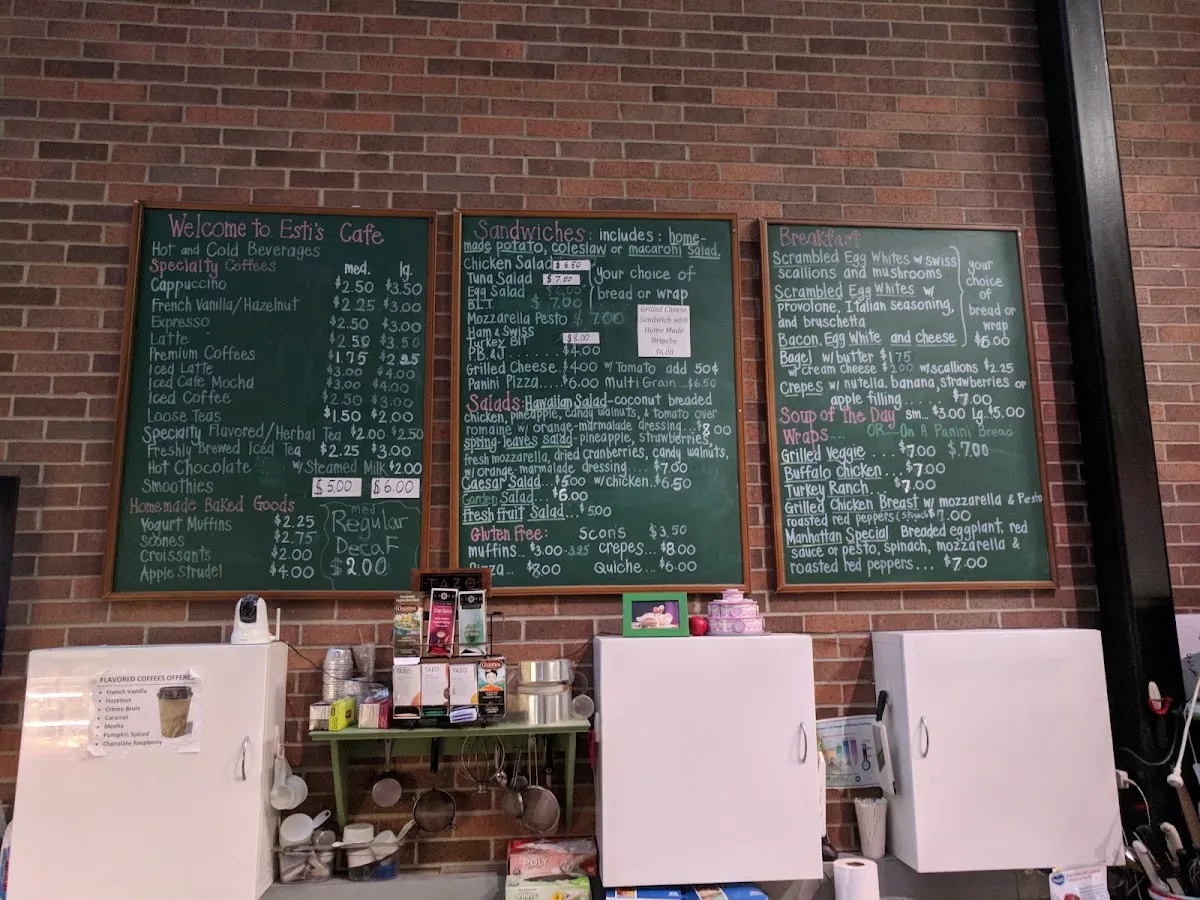 Welcome to Esti's Cafe
Hot and Cold Beverages
Specialty Coffees med. lg.
Cappuccino $2.50 $3.50
French Vanilla/Hazelnut $2.25 $3.00
Expresso $2.50 $3.00
Latte $2.50 $3.50
Premium Coffees $1.75 $2.25
Iced Latte $3.00 $4.00
Iced Cafe Mocha $3.00 $4.00
Iced Coffee $2.50 $3.00
Loose Teas $1.50 $2.00
Specialty Flavored/Herbal Tea $2.00 $2.50
Freshly Brewed Iced Tea $2.25 $3.00
Hot Chocolate w/Steamed Milk $2.00
Smoothies $5.00 $6.00
Homemade Baked Goods
Yogurt Muffins $2.25
Scones $2.75
Croissants $2.00
Apple Strudel $4.00
med
Regular
Decaf
$2.00
Sandwiches: includes: home-
made potato, coleslaw or macaroni salad.
Chicken Salad $6.50
Tuna Salad $7.00
Egg Salad
B.L.T. $7.00
your choice of
bread or wrap
Mozzarella Pesto $7.00
Ham & Swiss
Turkey BLT $8.00
P.B.&J ...... $4.00
Grilled Cheese
Sandwich with
Home Made
Brioche
$6.00
Grilled Cheese $4.00 w/Tomato add 50¢
Panini Pizza.... $6.00 Multi Grain ...$6.50
Salads: Hawaiian Salad-coconut breaded
chicken, pineapple, candy walnuts, & tomato over
romaine w/ orange-marmalade dressing... $8.00
spring-leaves salad-pineapple, strawberries,
fresh mozzarella, dried cranberries, candy walnuts,
w/orange-marmalade dressing.... $7.00
Caesar Salad... $5.00 w/chicken.$6.50
Garden Salad... $6.00
fresh fruit Salad... $5.00
Gluten Free: Scons $3.50
muffins... $3.00 3.25 crepes... $8.00
Pizza... $8.00 Quiche... $6.00
Breakfast
Scrambled Egg Whites w/ swiss
scallions and mushrooms
Scrambled Egg Whites w/
provolone, Italian seasoning,
and bruschetta
Bacon, Egg White and cheese
your
choice
of
bread or
wrap
$6.00
Bagel w/butter $1.75
w/cream cheese $2.00 w/scallions $2.25
Crepes w/ nutella, banana, strawberries or
apple filling ..... $7.00
Soup of the Day sm.. $3.00 lg. $5.00
Wraps.... OR On A Panini Bread
Grilled Veggie .... $7.00 $7.00
Buffalo chicken .. $7.00
Turkey Ranch.. $7.00
Grilled Chicken Breast w/ mozzarella & Pesto
roasted red peppers $7.00
Manhattan Special Breaded eggplant, red
sauce or pesto, spinach, mozzarella &
roasted red peppers... $7.00
FLAVORED COFFEES OFFERE
French Vanilla
Hazelnut
Crème Brule
Caramel
Mocha
Pumpkin Spiced
Chocolate Raspberry
TAZO
TAZO
TAZO
TAZO
POLY